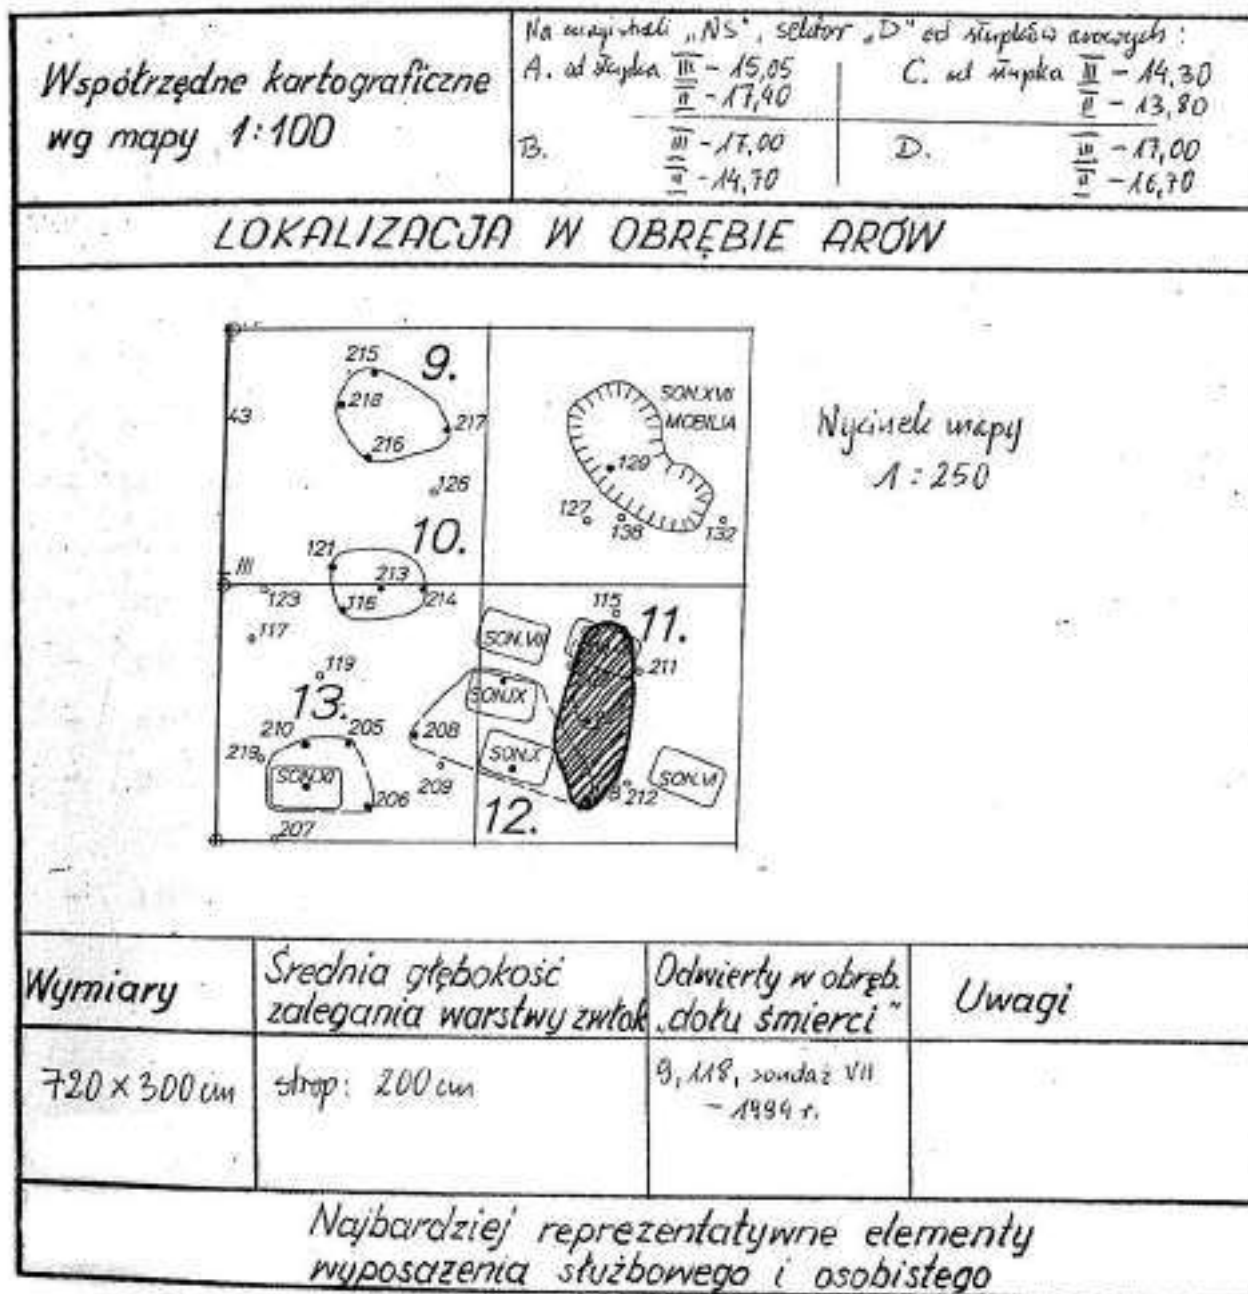 Współrzędne kartograficzne
wg mapy 1:100
Na magistrali „NS", sektor „D" od słupków arowych:
A. od słupka III - 15,05
II - 17,40
C. od słupka III - 14,30
II - 13,80
B. III - 17,00
II - 14,70
D. III - 17,00
II - 16,70
LOKALIZACJA W OBRĘBIE ARÓW
215 9.
218
43
217
216
126
SON.XVII
MOBILIA
129
127
138
132
Wycinek mapy
1:250
10.
121
III
213
123
116
214
117
115
11.
SON.VII
211
119
13.
SON.IX
210 205
208
219
SON.X
209
SON.XII
206
212
SON.VI
8
12.
207
Wymiary
Średnia głębokość
zalegania warstwy zwłok
Odwierty w obręb.
„dołu śmierci"
Uwagi
720 × 300 cm
strop: 200 cm
9, 118, sondaż VII
- 1994 r.
Najbardziej reprezentatywne elementy
wyposażenia służbowego i osobistego